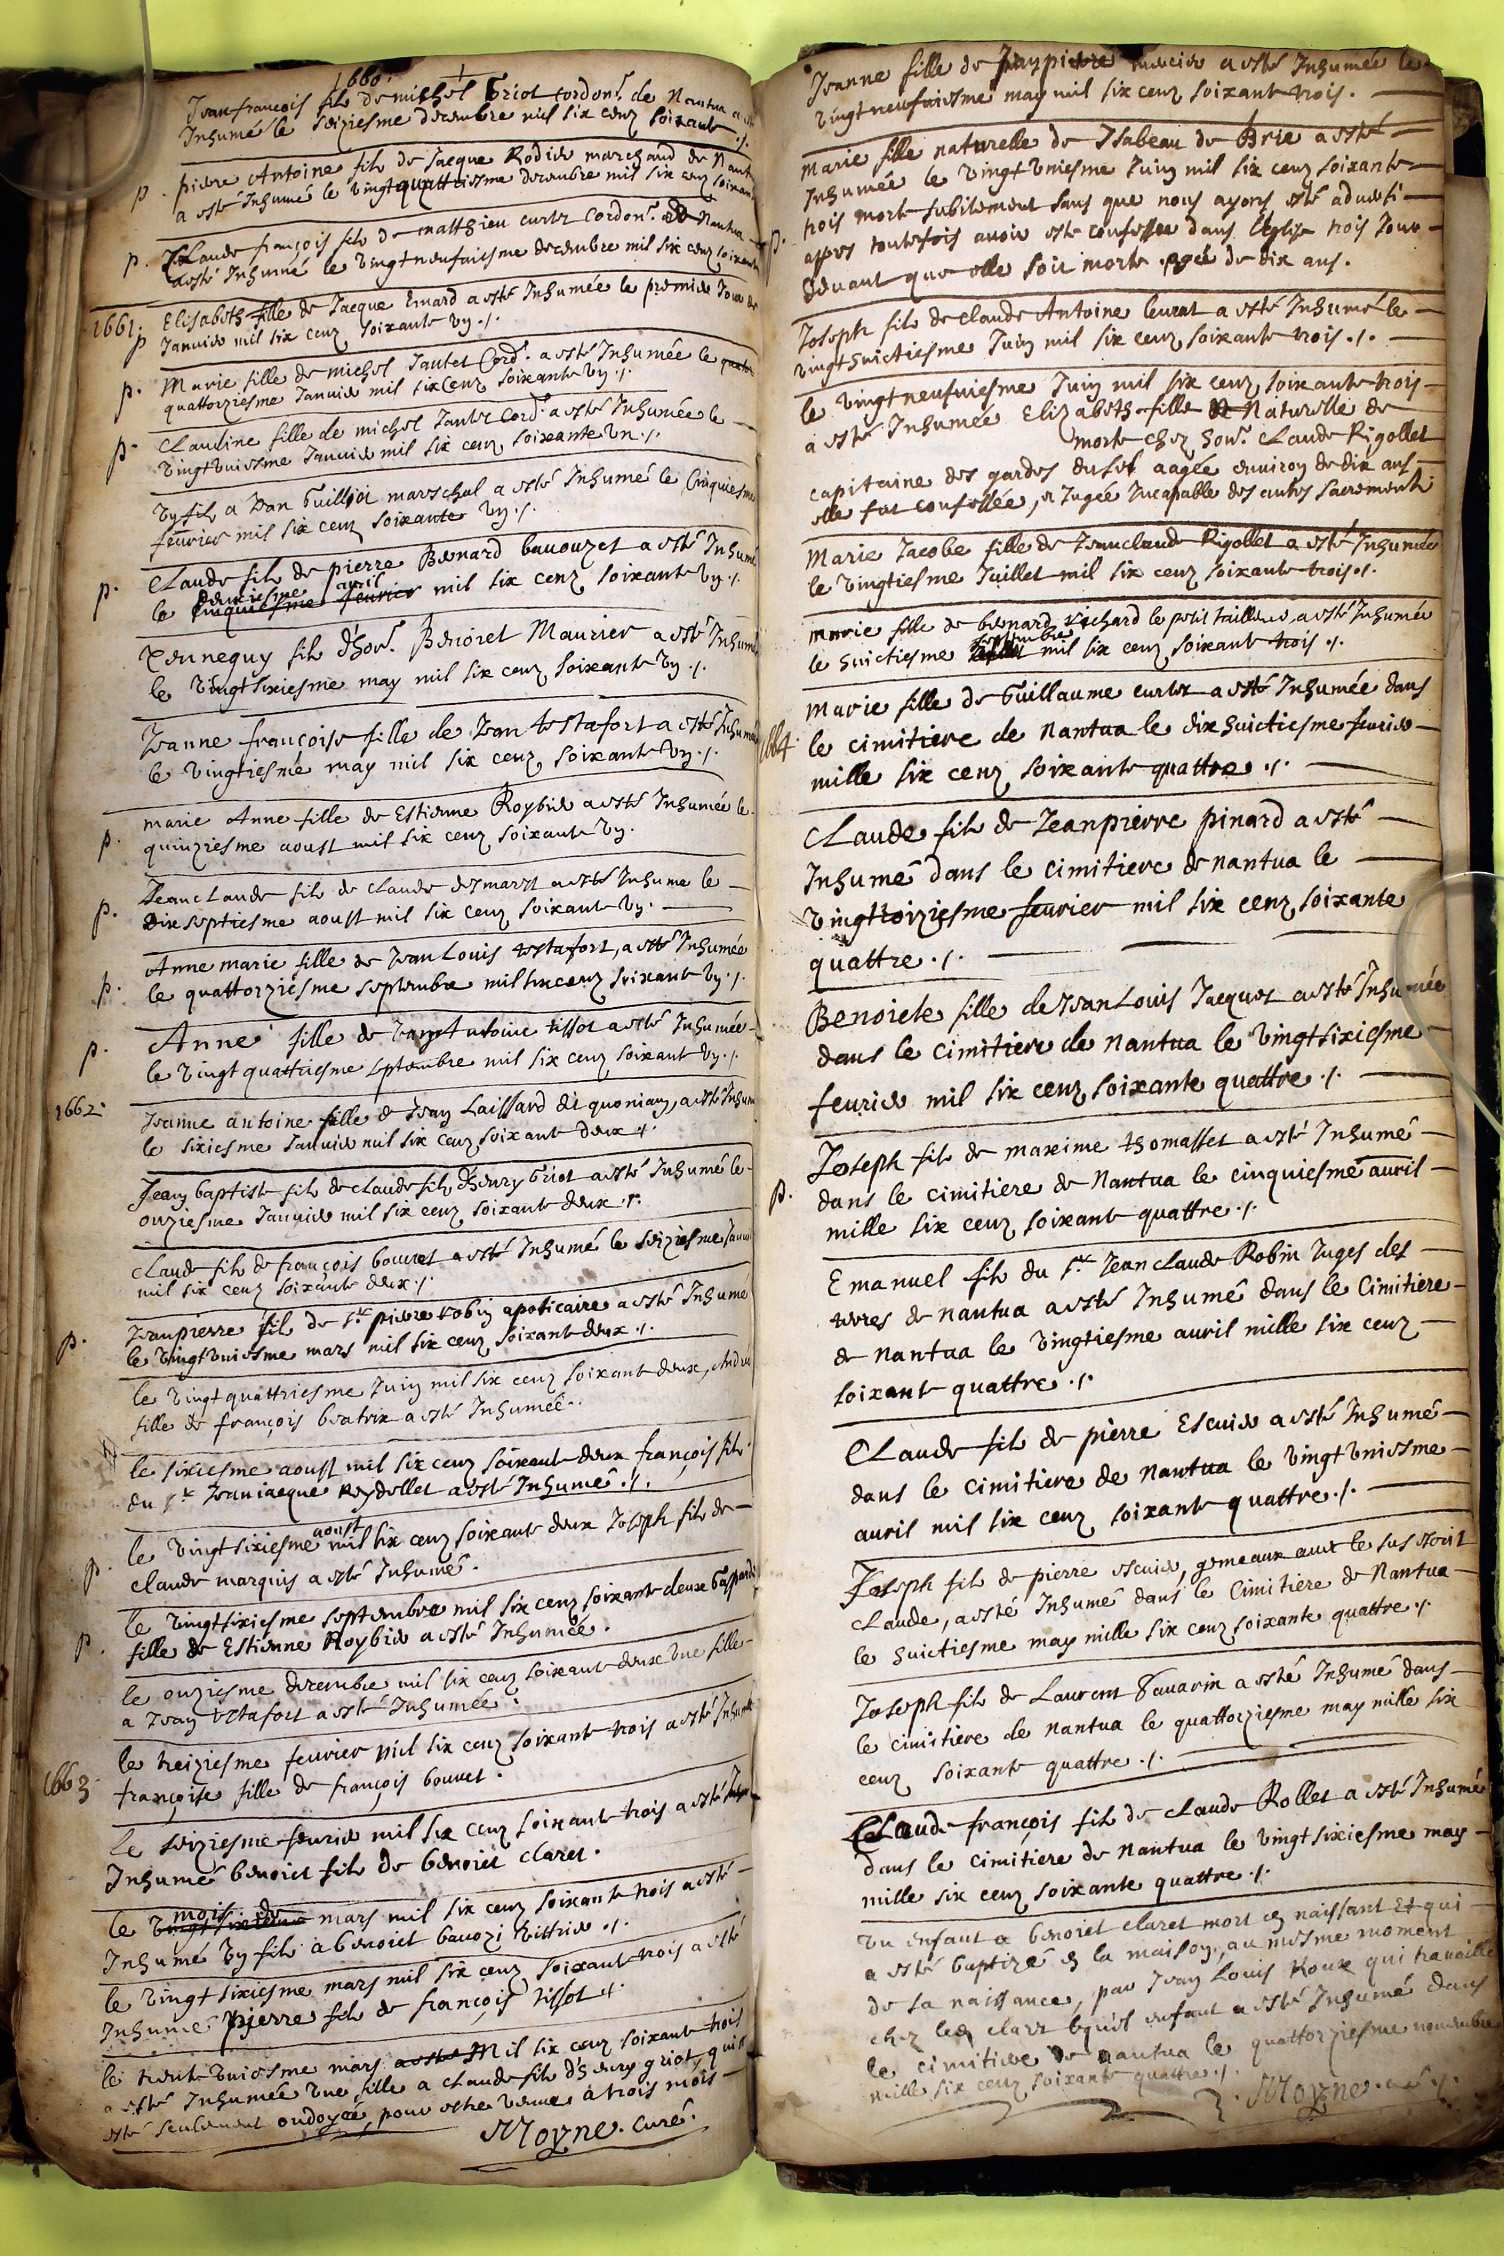 1660.
Jean francois fils de michel Griot cordon.r de Nantua a
Inhumé le seiziesme decembre mil six cenz soixante ./.
p. pierre Antoine fils de Jacque Rodier marchand de Nant
a esté Inhumé le vingt quattriesme decembre mil six cenz soixan
p. Claude françois fils de matthieu curtet Cordon.r de Nantua
a esté Inhumé le vingt neufuiesme decembre mil six cenz soixante
1661. Elisabeth fille de Jacque Emard a esté Inhumée le premier Jour de
p Januier mil six cenz soixante vn ./.
p. Marie fille de michel Jantet Cord.r a esté Inhumée le
quattorziesme Januier mil six cenz soixante vn ./.
p. Claudine fille de michel Jantet Cord.r a esté Inhumée le
vingt vniesme Januier mil six cenz soixante vn ./.
vn fils a Jean Guilliot mareschal a esté Inhumé le Cinquiesme
feurier mil six cenz soixante vn ./.
p. Claude fils de pierre Bernard bauouzet a esté Inhumé
deuxiesme auril
le cinquiesme feurier mil six cenz soixante vn ./.
Pennequy fils d'hon.r Benoict Maurier a esté Inhumé
le vingt sixiesme may mil six cenz soixante vn ./.
Jeanne françoise fille de Jean testafort a esté Inhumée
le vingtiesme may mil six cenz soixante vn ./.
marie Anne fille de Estienne Roybier a esté Inhumée le
p. quinziesme aoust mil six cenz soixante vn.
Jeanclaude fils de claude desmaret a esté Inhume le
p. dix septiesme aoust mil six cenz soixante vn.
Anne marie fille de Jean Louis testafort, a esté Inhumée
p. le quattorziesme septembre mil six cenz soixante vn ./.
Anne fille de Jean Antoine tissot a esté Inhumée
p. le vingt quattriesme septembre mil six cenz soixante vn ./.
1662. Jeanne antoine fille de Jean Laissard dit quoniam, a esté Inhum
le sixiesme Januier mil six cenz soixant deux ./.
Jean baptiste fils de claude fils d'henry Griot a esté Inhumé le
onziesme Januier mil six cenz soixant deux ./.
claude fils de françois bouuet a esté Inhumé le seiziesme Januie
mil six cenz soixante deux ./.
Jeanpierre fils de s.r pierre robin apoticaire a esté Inhumé
p. le vingt vniesme mars mil six cenz soixant deux ./.
le vingt quattriesme Juin mil six cenz soixant deux, André
fille de françois beatrix a esté Inhumée.
le sixiesme aoust mil six cenz soixant deux françois fils
du s.r Jeaniacque Reydellet a esté Inhumé ./.
aoust
le vingt sixiesme mil six cenz soixant deux Joseph fils de
p. claude marquis a esté Inhumé.
le vingt sixiesme septembre mil six cenz soixante deux Gasparde
p. fille de Estienne Roybier a esté Inhumée.
le onziesme decembre mil six cenz soixant deux vne fille
a Jean testafort a esté Inhumée.
1663. le treiziesme feurier mil six cenz soixante trois a esté Inhumée
françoise fille de françois bouuet.
le seiziesme feurier mil six cenz soixant trois a esté
Inhumé benoict fils de benoict claret.
mois de
le vingt sixieme mars mil six cenz soixante trois a esté
Inhumé vn fils à benoict bauozi vittrier ./.
le vingt sixiesme mars mil six cenz soixant trois a esté
Inhumé pierre fils de françois tissot ./.
le trente vniesme mars a esté Mil six cenz soixant trois
a esté Inhumée vne fille a claude fils d'henry griot, qui a
esté seulement ondoyée, pour estre venue à trois mois
Moyne. curé.
Jeanne fille de Jeanpierre mercier a esté Inhumée le
vingt neufuiesme may mil six cenz soixant trois.
Marie fille naturelle de Isabeau de Brie a esté
Inhumée le vingt vniesme Juin mil six cenz soixante
trois morte subitement sans que nous ayons esté aduerti
p. appres toutefois auoir esté confessée dans l'eglise trois Jour
deuant que elle soit morte. agée de dix ans.
Joseph fils de claude Antoine leurat a esté Inhumé le
vingt huictiesme Juin mil six cenz soixante trois ./.
le vingt neufuiesme Juin mil six cenz soixante trois
a esté Inhumée Elizabeth fille Naturelle de
morte chez hon.r Claude Rigollet
capitaine des gardes du sel aagée enuiron de dix ans
elle fut confessée, et Jugée Incapable des autres sacrements
Marie Jacobe fille de Jeanclaude Rigollet a esté Inhumée
le vingtiesme Juillet mil six cenz soixante trois ./.
marie fille de bernard richard le petit tailleur, a esté Inhumée
septembre
le huictiesme mil six cenz soixant trois ./.
Marie fille de Guillaume curtet a esté Inhumée dans
1664. le cimitiere de Nantua le dix huictiesme feurier
mille six cenz soixante quattre ./.
Claude fils de Jeanpierre pinard a esté
Inhumé dans le cimitiere de nantua le
vingttroiziesme feurier mil six cenz soixante
quattre ./.
Benoicte fille de Jean Louis Jacquet a esté Inhumée
dans le cimitiere de Nantua le vingt sixiesme
feurier mil six cenz soixante quattre ./.
Joseph fils de maxime thomasset a esté Inhumé
p. dans le cimitiere de Nantua le cinquiesme auril
mille six cenz soixant quattre ./.
Emanuel fils du s.r Jean claude Robin Juges des
terres de nantua a esté Inhumé dans le Cimitiere
de Nantua le vingtiesme auril mille six cenz
soixant quattre ./.
Claude fils de pierre Escuier a esté Inhumé
dans le cimitiere de Nantua le vingt vniesme
auril mil six cenz soixante quattre ./.
Joseph fils de pierre escuier, gemeaux auec le sus escrit
Claude, a esté Inhumé dans le Cimitiere de Nantua
le huictiesme may mille six cenz soixante quattre ./.
Joseph fils de Laurent Sauarin a esté Inhumé dans
le cimitiere de Nantua le quattorziesme may mille six
cenz soixante quattre ./.
Claude françois fils de claude Rollet a esté Inhumé
dans le cimitiere de Nantua le vingt sixiesme may
mille six cenz soixante quattre ./.
vn enfant a benoict claret mort en naissant Et qui
a esté baptizé en la maison, au mesme moment
de sa naissance, par Jean Louis Roux qui trauaille
chez led claret lequel enfant a esté Inhumé dans
le cimitiere de nantua le quattorziesme nouembre
mille six cenz soixante quattre ./.
Moyne. curé ./.